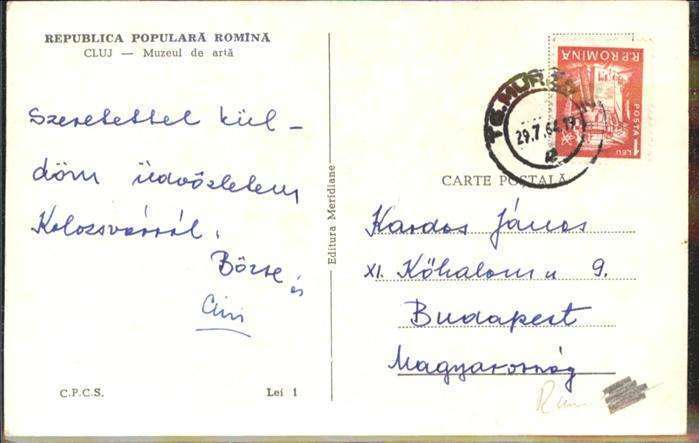 REPUBLICA POPULARĂ ROMÎNĂ
CLUJ — Muzeul de artă
Szeretettel kül-
döm üdvözletem
Kolozsvárról.
Börse
és
C.P.C.S.
Lei 1
Editura Meridiane
R.P.ROMINA
POSTA
1 LEU
TG. MUREȘ
29.7.64.19
2
CARTE POȘTALĂ
Kardos János
XI. Kőhalom u 9.
Budapest
Magyarország